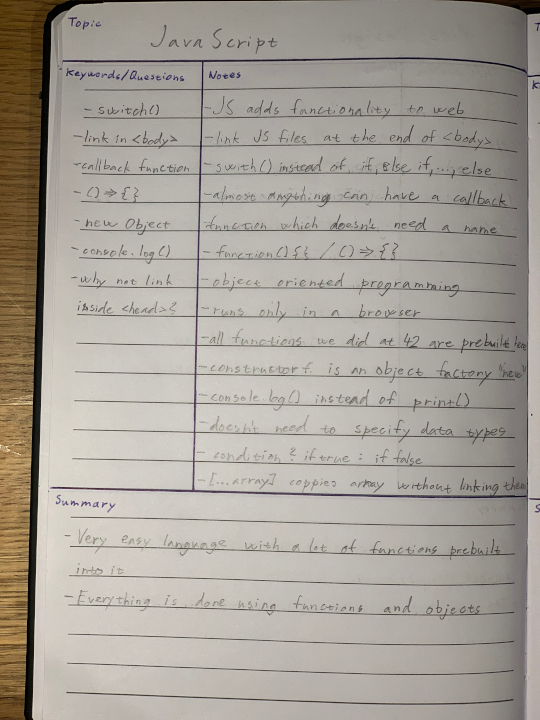 Topic
JavaScript
Keywords/Questions
Notes
- switch()
-link in <body>
-callback function
- () => {}
- new Object
- console.log()
-why not link
inside <head>?
-JS adds functionality to web
-link JS files at the end of <body>
-swith() instead of if, else if, ..., else
-almost anything can have a callback
function which doesn't need a name
-function(){} / () => {}
-object oriented programming
-runs only in a browser
-all functions we did at 42 are prebuilt here
-constructor f. is an object factory "new"
-console.log() instead of print()
-doesn't need to specify data types
- condition ? if true : if false
-[...array] coppies array without linking them
Summary
-Very easy language with a lot of functions prebuilt
into it
-Everything is done using functions and objects